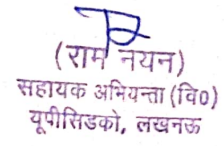 (राम नयन)
सहायक अभियन्ता (वि०)
यूपीसिडको, लखनऊ